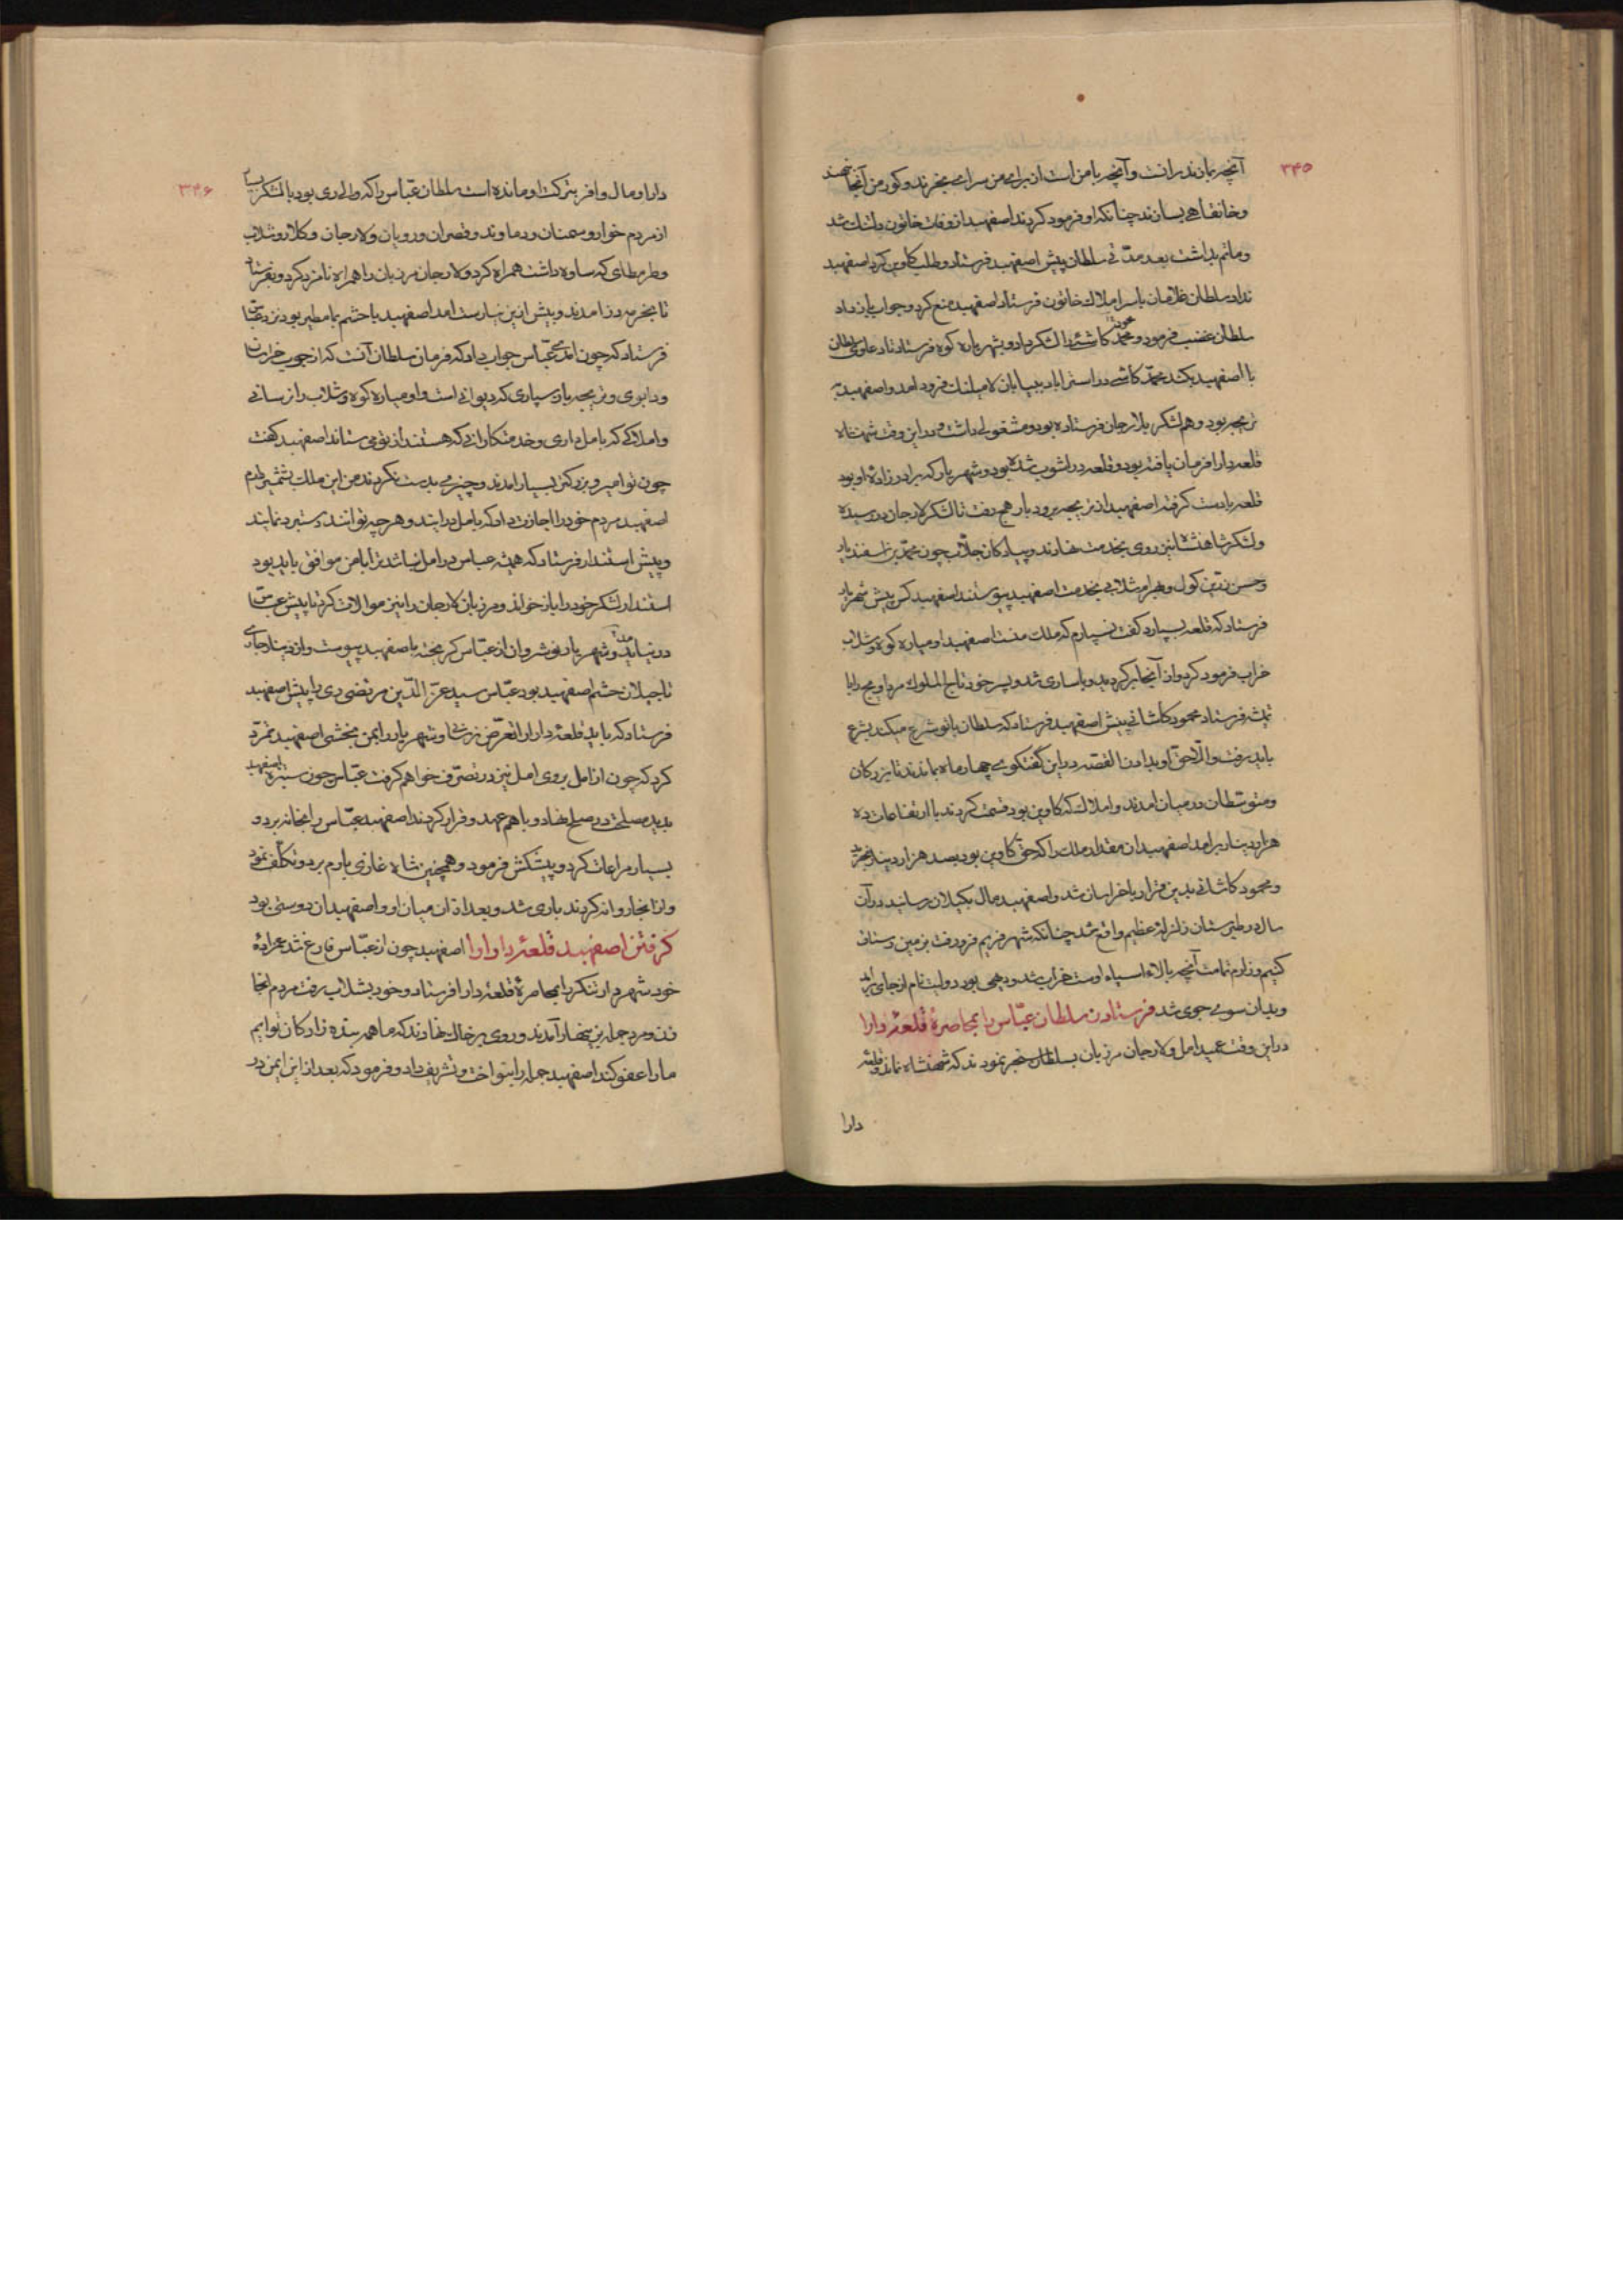 ۳۴۵
آنچه بمازندرانست و آنچه با من است از برای من سرای بخرند و کور من آنجا نهند
و خانقاهی بسازند چنانکه او فرمود کردند اصفهبد از وفات خاتون دلتنک شد
و ماتم بداشت بعد مدّتی سلطان پیش اصفهبد فرستاد و طلب کاوین کرد اصفهبد
نداد سلطان غلامان باسر املاک خاتون فرستاد اصفهبد منع کرد و جواب باز داد
سلطان غضب فرمود و محمّد کاشی را لشکر داد و بشهریاره کوه فرستاد تا دعاوی سلطان
با اصفهبد بکند محمّد کاشی در استراباد ببیابان کامیلنک فرود امد و اصفهبد به
تریجه بود و هم لشکر بلارجان فرستاده بود و مشغولی داشت و در این وقت شهنشاه
قلعه دارا فرمان یافته بود و قلعه در اشوب شده بود و شهریار که برادرزاده او بود
قلعه بادست کرفته اصفهبد از تریجه برودبار هم رفت تا لشکر لارجان در رسیده
و لشکر شاهنشاه نیز روی بخدمت نهادند و پیادکان جلاب چون محمّد بن اسفندیار
و حسن زرّین کول و بهرام شلابی بخدمت اصفهبد پیوستند اصفهبد کس پیش شهریار
فرستاد که قلعه بسپارد کفت نسپارم که ملک منست اصفهبد اومیاره کوه و شلاب
خراب فرمود کرد و از آنجا برکردید و باساری شد و پسر خود تاج الملوک مرداویج را با
تمیشه فرستاد محمود کاشانی پیش اصفهبد فرستاد که سلطان با تو شرع میکند بشرع
باید رفت و الّا حق او بدادن القصّه در این کفتکوی چهار ماه بماندند تا بزرکان
و متوسّطان در میان امدند و املاک که کاوین بود قسمت کردند با ارتفاعات ده
هزار دینار برامد اصفهبد ان مقدار ملک را که حقّ کاوین بود بصد هزار دینار بخرید
و محمود کاشانی بدین قرار با خراسان شد و اصفهبد مال بکیلان رسانید در آن
سال در طبرستان زلزلهٔ عظیم واقع شد چنانکه شهر فریم فرو رفت بزمین و رستاق
کسیم و زارم تمامت آنچه بالاء اسپاه اوست خراب شد و دیهی بود دولیت نام از جای برامد
و بدان سوی جوی شد فرستادن سلطان عبّاس را بمحاصرهٔ قلعهٔ دارا
در این وقت عمید امل و لارجان مرزبان بسلطان سنجر نمودند که شهنشاه نماند و قلعه
دارا
۳۴۶
دارا و مال وافر بترکت او مانده است سلطان عبّاس را که والی ری بود با لشکر بسیار
از مردم خوار و سمنان و دماوند و قصران و رویان و لارجان و کلار و شلاب
و طرمطای که ساوه داشت همراه کرد و لارجان مرزبان را همراه نامزد کرد و بفرستاد
تا بخرمه رز امدند و پیش از این نیارست امد اصفهبد با حشم بمامطیر بود نزد عبّاس
فرستاد که چون امدی عبّاس جواب داد که فرمان سلطان آنست که از جوب خراسان
و دابوی و تریجه باز سپاری که دیوانی است و اومیاره کوه و شلاب را نرسانی
و املاکی که بامل داری و خدمتکارانی که هستند از تو می ستاند اصفهبد کفت
چون تو امیر و بزرکتر بسیار امدند و چیزی بدست نکردند من این ملک بشمشیر دارم
اصفهبد مردم خود را اجازت داد که بامل درایند و هر چه توانند دستبرد نمایند
و پیش استندار فرستاد که همیشه عباس در امل نباشد ترا با من موافق باید بود
استندار لشکر خود را باز خواند و مرزبان لارجان را نیز موالات کرد تا پیش عبّاس
در نیاید و شهریار نوشروان از عبّاس کریخته باصفهبد پیوست و از دینارجاری
تا جیلان حشم اصفهبد بود عبّاس سید عزّ الدّین مرتضی ری را پیش اصفهبد
فرستاد که باید قلعه دارا را تعرّض نرسانی و شهریار را بمن بخشی اصفهبد تمرّد
کرد که چون از امل بروی امل نیز در تصرّف خواهم کرفت عبّاس چون ستیزه اصفهبد
بدید مصلحت در صلح نهاد و با هم عهد و قرار کردند اصفهبد عبّاس را بخانه برد و
بسیار مراعات کرد و پیشکش فرمود و همچنین شاه غازی بارم برد و تکلّف نمود
و از انجا روانه کردند باری شد و بعد از ان میان او و اصفهبدان دوستی بود
کرفتن اصفهبد قلعهٔ داوارا اصفهبد چون از عبّاس فارغ شد عمزادهٔ
خود شهردار تنکر را بمحاصرهٔ قلعهٔ دارا فرستاد و خود بشلاب رفت مردم انجا
زن و مرد جمله بزینهار آمدند و روی بر خاک نهادند که ما همه بنده زادکان توایم
ما را عفو کند اصفهبد جمله را بنواخت و تشریف داد و فرمود که بعد از این ایمن در